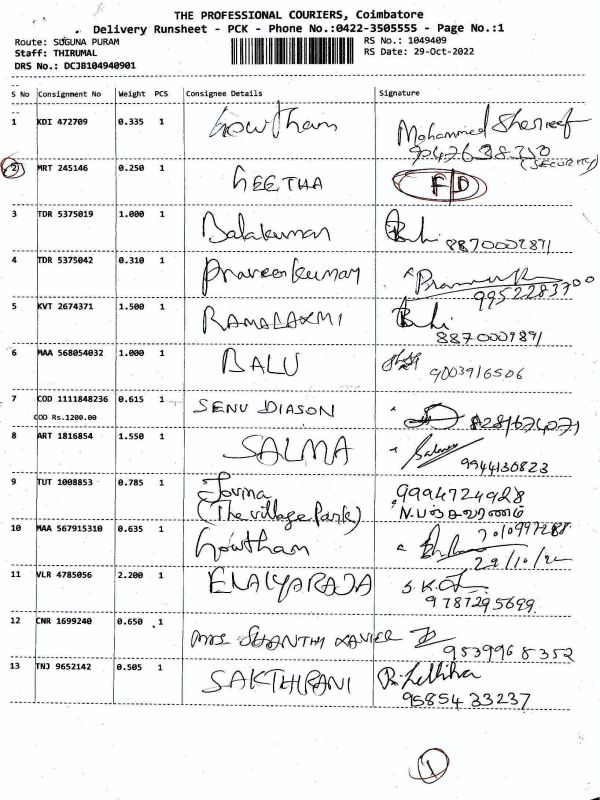 THE PROFESSIONAL COURIERS, Coimbatore
Delivery Runsheet - PCK - Phone No.:0422-3505555 - Page No.:1
Route: SUGUNA PURAM
RS No.: 1049409
Staff: THIRUMAL
RS Date: 29-Oct-2022
DRS No.: DCJB104940901
S No Consignment No Weight PCS Consignee Details Signature
1 KDI 472709 0.335 1 Gowtham Mohammed Shereef
(SECURITY)
2 MRT 245146 0.250 1 GEETHA F D
3 TDR 5375019 1.000 1 Balakumar 8870007891
4 TDR 5375042 0.310 1 Praveenkumar 9952283700
5 KVT 2674371 1.500 1 RAMALAXMI 8870007891
6 MAA 568054032 1.000 1 BALU 9003916506
7 COD 1111848236 0.615 1 SENU DIASON
COD Rs.1200.00
8 ART 1816854 1.550 1 SALMA Salma
9944136823
9 TUT 1008853 0.785 1 9994724928
(The village Park)
10 MAA 567915310 0.635 1 Gowtham
29/10/22
11 VLR 4785056 2.200 1 ELAIYARAJA S.K.
9787295699
12 CNR 1699240 0.650 1 MRS SHANTHI XAVIER
9539968352
13 TNJ 9652142 0.505 1 SAKTHIRANI
9585433237
1